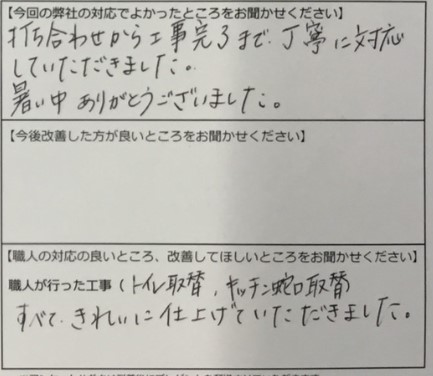 【今回の弊社の対応でよかったところをお聞かせください】
打ち合わせから工事完了まで、丁寧に対応
していただきました。
暑い中 ありがとうございました。
【今後改善した方が良いところをお聞かせください】
【職人の対応の良いところ、改善してほしいところをお聞かせください】
職人が行った工事（トイレ取替、キッチン蛇口取替）
すべて、きれいに仕上げていただきました。